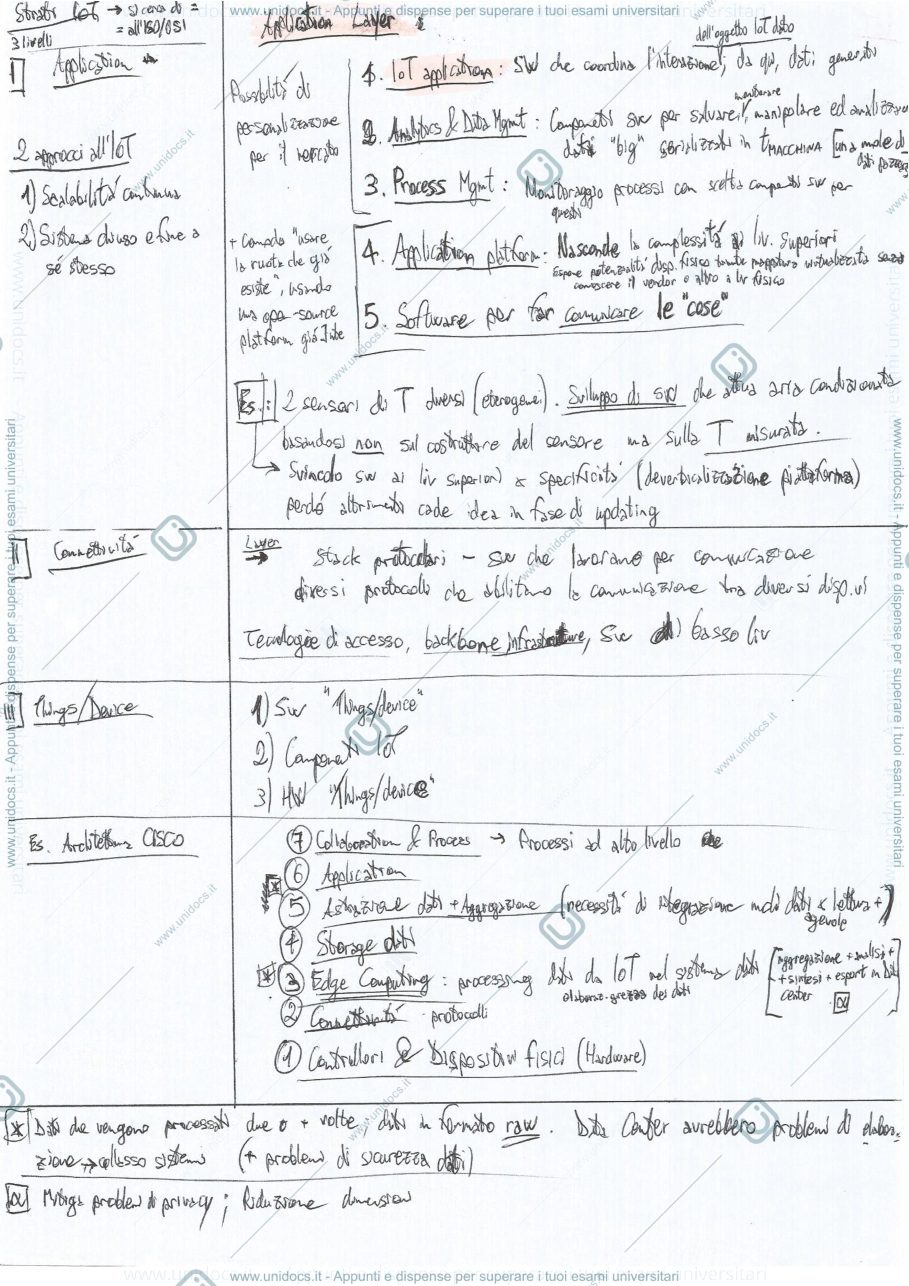 www.unidocs.it - Appunti e dispense per superare i tuoi esami universitari
Strati IoT → si cerca di =
= all'ISO/OSI
3 livelli
I Application
2 approcci all'IoT
1) Scalabilità continua
2) Sistema chiuso e fine a
sé stesso
Application Layer
Possibilità di
personalizzazione
per il mercato
+ Comodo "usare
la ruota che già
esiste", usando
una open-source
platform già
dell'oggetto IoT dato
1. IoT application: SW che coordina l'interazione, da qui, dati generati
2. Analytics & Data Mgmt: Componenti sw per salvare, manipolare ed analizzare
monitorare
dati "big" serializzati in tMACCHINA [una mole di
dati pazzesca
3. Process Mgmt: Monitoraggio processi con scelta componenti sw per
questi
4. Application platform: Nasconde la complessità ai liv. superiori
Espone potenzialità disp. fisico tramite mappatura virtualizzata senza
conoscere il vendor o altro a liv fisico
5. Software per far comunicare le "cose"
Es.: 2 sensori di T diversi (eterogenei). Sviluppo di SW che attiva aria condizionata
basandosi non sul costruttore del sensore ma sulla T misurata.
→ Svincolo sw ai liv superiori x specificità (deverticalizzazione piattaforma)
perché altrimenti cade idea in fase di updating
II Connettività
Layer
→ Stack protocollari - sw che lavorano per comunicazione
diversi protocolli che abilitano la comunicazione tra diversi disp.vi
Tecnologie di accesso, backbone infrastructure, sw di basso liv
III Things/Device
1) Sw "Things/device"
2) Componenti IoT
3) HW "Things/device"
Es. Architettura CISCO
7 Collaboration & Process → Processi ad alto livello
6 Application
* 5 Astrazione dati + Aggregazione (necessità di integrazione modi dati x lettura +)
agevole
4 Storage dati
* 3 Edge Computing: processing dati da IoT nel sistema dati [aggregazione + analisi +
elaboraz. grezza dei dati
+ sintesi + export in Data
Center α]
2 Connettività protocolli
1 Controllori & Dispositivi fisici (Hardware)
* Dati che vengono processati due o + volte; dati in formato raw. Data Center avrebbero problemi di elabora-
zione → collasso sistemi (+ problemi di sicurezza dati)
α Mitiga problemi di privacy; Riduzione dimensioni
www.unidocs.it - Appunti e dispense per superare i tuoi esami universitari